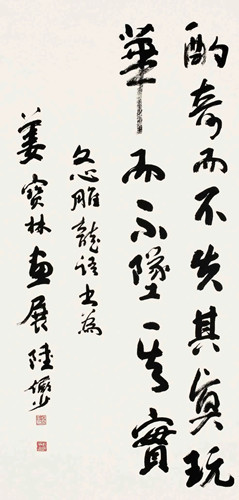 酌奇而不失其真玩
華而不墜其實
文心雕龍語書為
姜寶林畫展 陸儼少